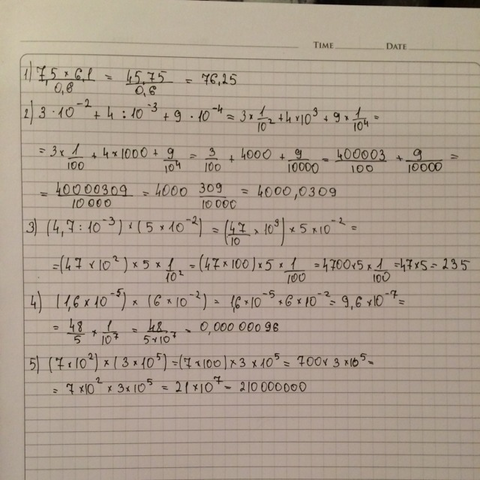 TIME DATE
1) 7,5 × 6,1 / 0,6 = 45,75 / 0,6 = 76,25
2) 3 · 10^-2 + 4 : 10^-3 + 9 · 10^-4 = 3 × 1/10^2 + 4 × 10^3 + 9 × 1/10^4 =
= 3 × 1/100 + 4 × 1000 + 9/10^4 = 3/100 + 4000 + 9/10000 = 400003/100 + 9/10000 =
= 40000309/10000 = 4000 309/10000 = 4000,0309
3) (4,7 : 10^-3) × (5 × 10^-2) = (47/10 × 10^3) × 5 × 10^-2 =
= (47 × 10^2) × 5 × 1/10^2 = (47 × 100) × 5 × 1/100 = 4700 × 5 × 1/100 = 47 × 5 = 235
4) (1,6 × 10^-5) × (6 × 10^-2) = 1,6 × 10^-5 × 6 × 10^-2 = 9,6 × 10^-7 =
= 48/5 × 1/10^7 = 48/5×10^7 = 0,00000096
5) (7 × 10^2) × (3 × 10^5) = (7 × 100) × 3 × 10^5 = 700 × 3 × 10^5 =
= 7 × 10^2 × 3 × 10^5 = 21 × 10^7 = 210000000